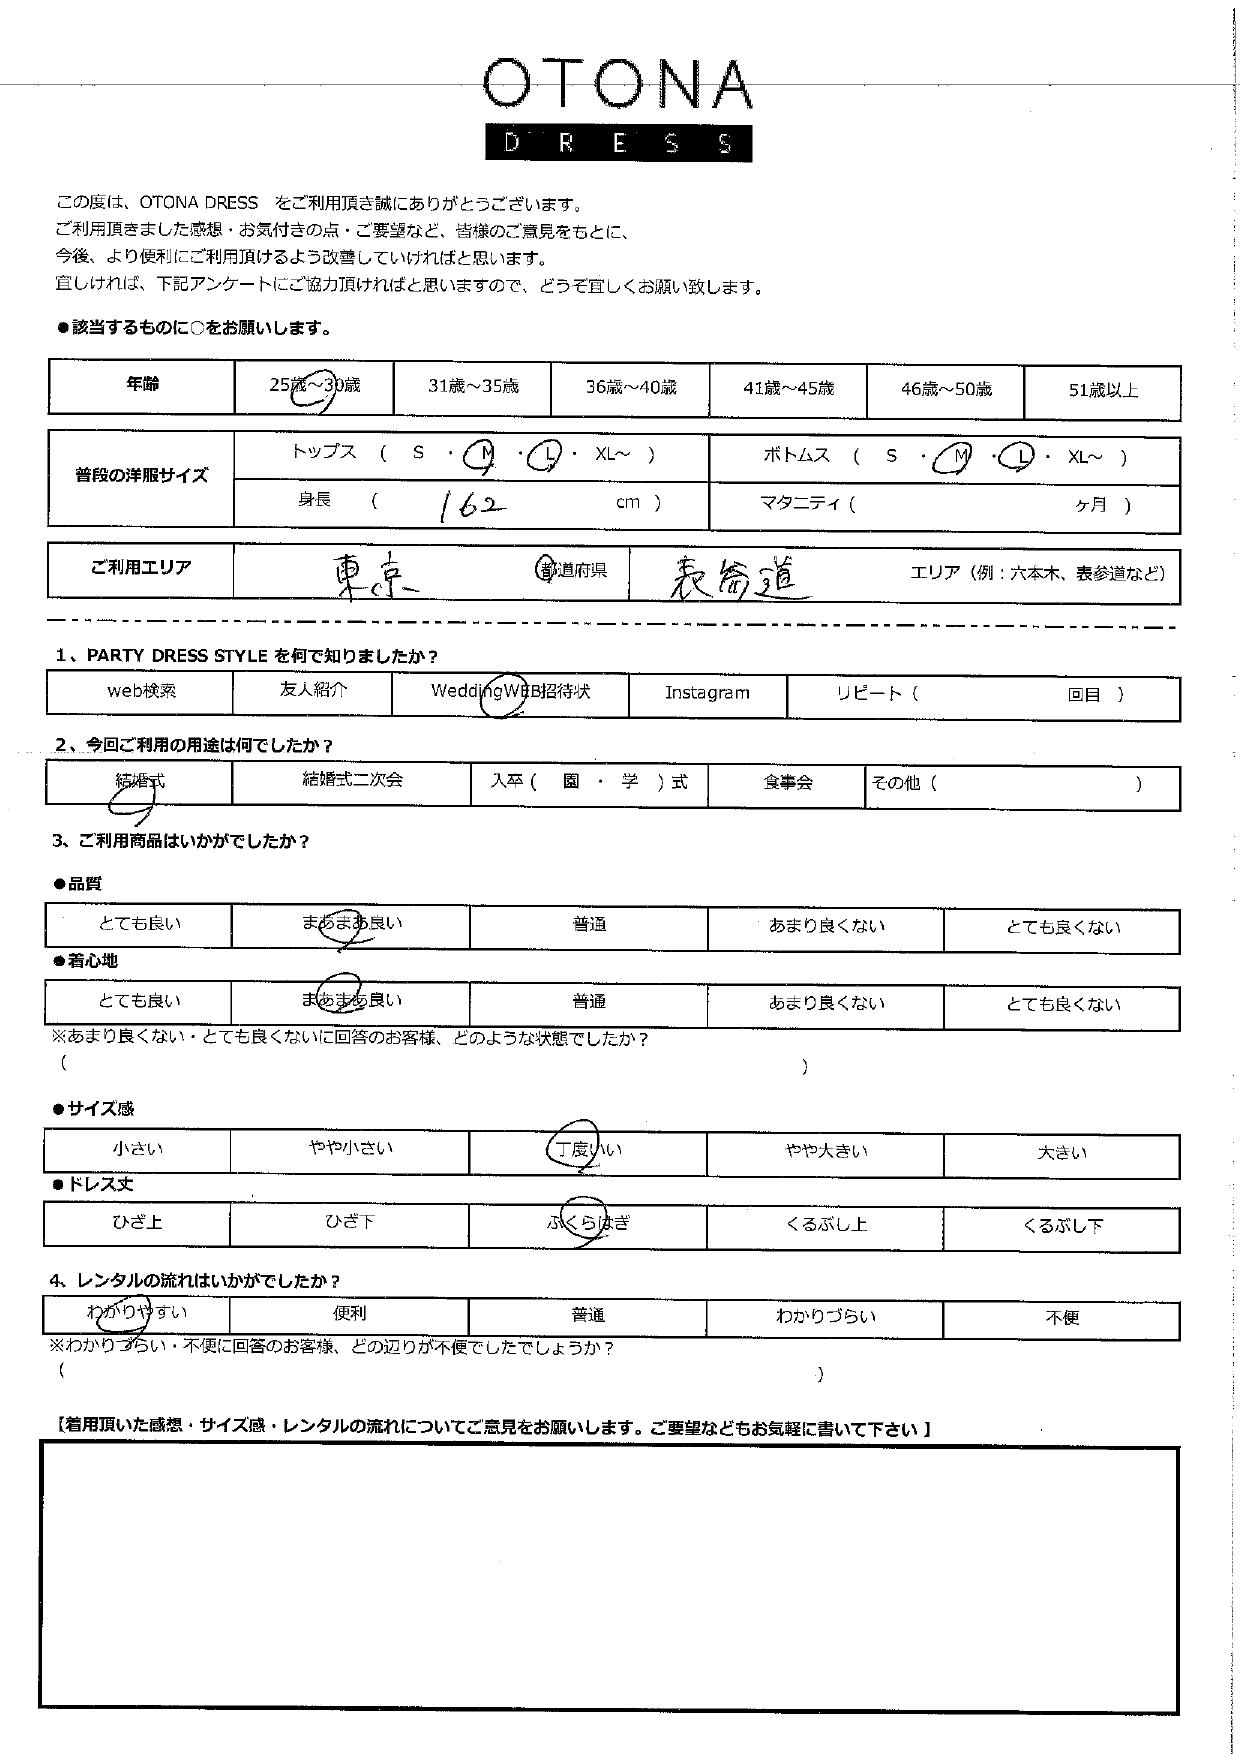 OTONA
DRESS
この度は、OTONA DRESS をご利用頂き誠にありがとうございます。
ご利用頂きました感想・お気付きの点・ご要望など、皆様のご意見をもとに、
今後、より便利にご利用頂けるよう改善していければと思います。
宜しければ、下記アンケートにご協力頂ければと思いますので、どうぞ宜しくお願い致します。
●該当するものに○をお願いします。
年齢 25歳～30歳 31歳～35歳 36歳～40歳 41歳～45歳 46歳～50歳 51歳以上
普段の洋服サイズ トップス ( S ・ M ・ L ・ XL～ ) ボトムス ( S ・ M ・ L ・ XL～ )
身長 ( 162 cm ) マタニティ ( ヶ月 )
ご利用エリア 東京 都道府県 表参道 エリア（例：六本木、表参道など）
1、PARTY DRESS STYLE を何で知りましたか？
web検索 友人紹介 WeddingWEB招待状 Instagram リピート ( 回目 )
2、今回ご利用の用途は何でしたか？
結婚式 結婚式二次会 入卒 ( 園 ・ 学 ) 式 食事会 その他 ( )
3、ご利用商品はいかがでしたか？
●品質
とても良い まあまあ良い 普通 あまり良くない とても良くない
●着心地
とても良い まあまあ良い 普通 あまり良くない とても良くない
※あまり良くない・とても良くないに回答のお客様、どのような状態でしたか？
( )
●サイズ感
小さい やや小さい 丁度いい やや大きい 大きい
●ドレス丈
ひざ上 ひざ下 ふくらはぎ くるぶし上 くるぶし下
4、レンタルの流れはいかがでしたか？
わかりやすい 便利 普通 わかりづらい 不便
※わかりづらい・不便に回答のお客様、どの辺りが不便でしたでしょうか？
( )
【着用頂いた感想・サイズ感・レンタルの流れについてご意見をお願いします。ご要望などもお気軽に書いて下さい 】